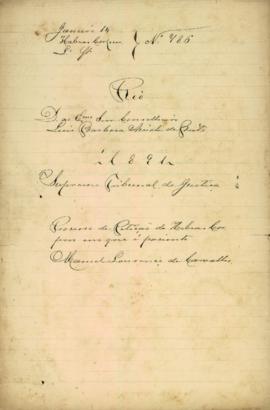 Janeiro 14
Habeas Corpus } Nº 786
Rio
D. ao Exmo Snr Conselheiro
Luis Barbosa
1891
Supremo Tribunal de Justiça
Processo de Petição de Habeas Cor
pus em que é paciente
Manoel Lourenço de Carvalho